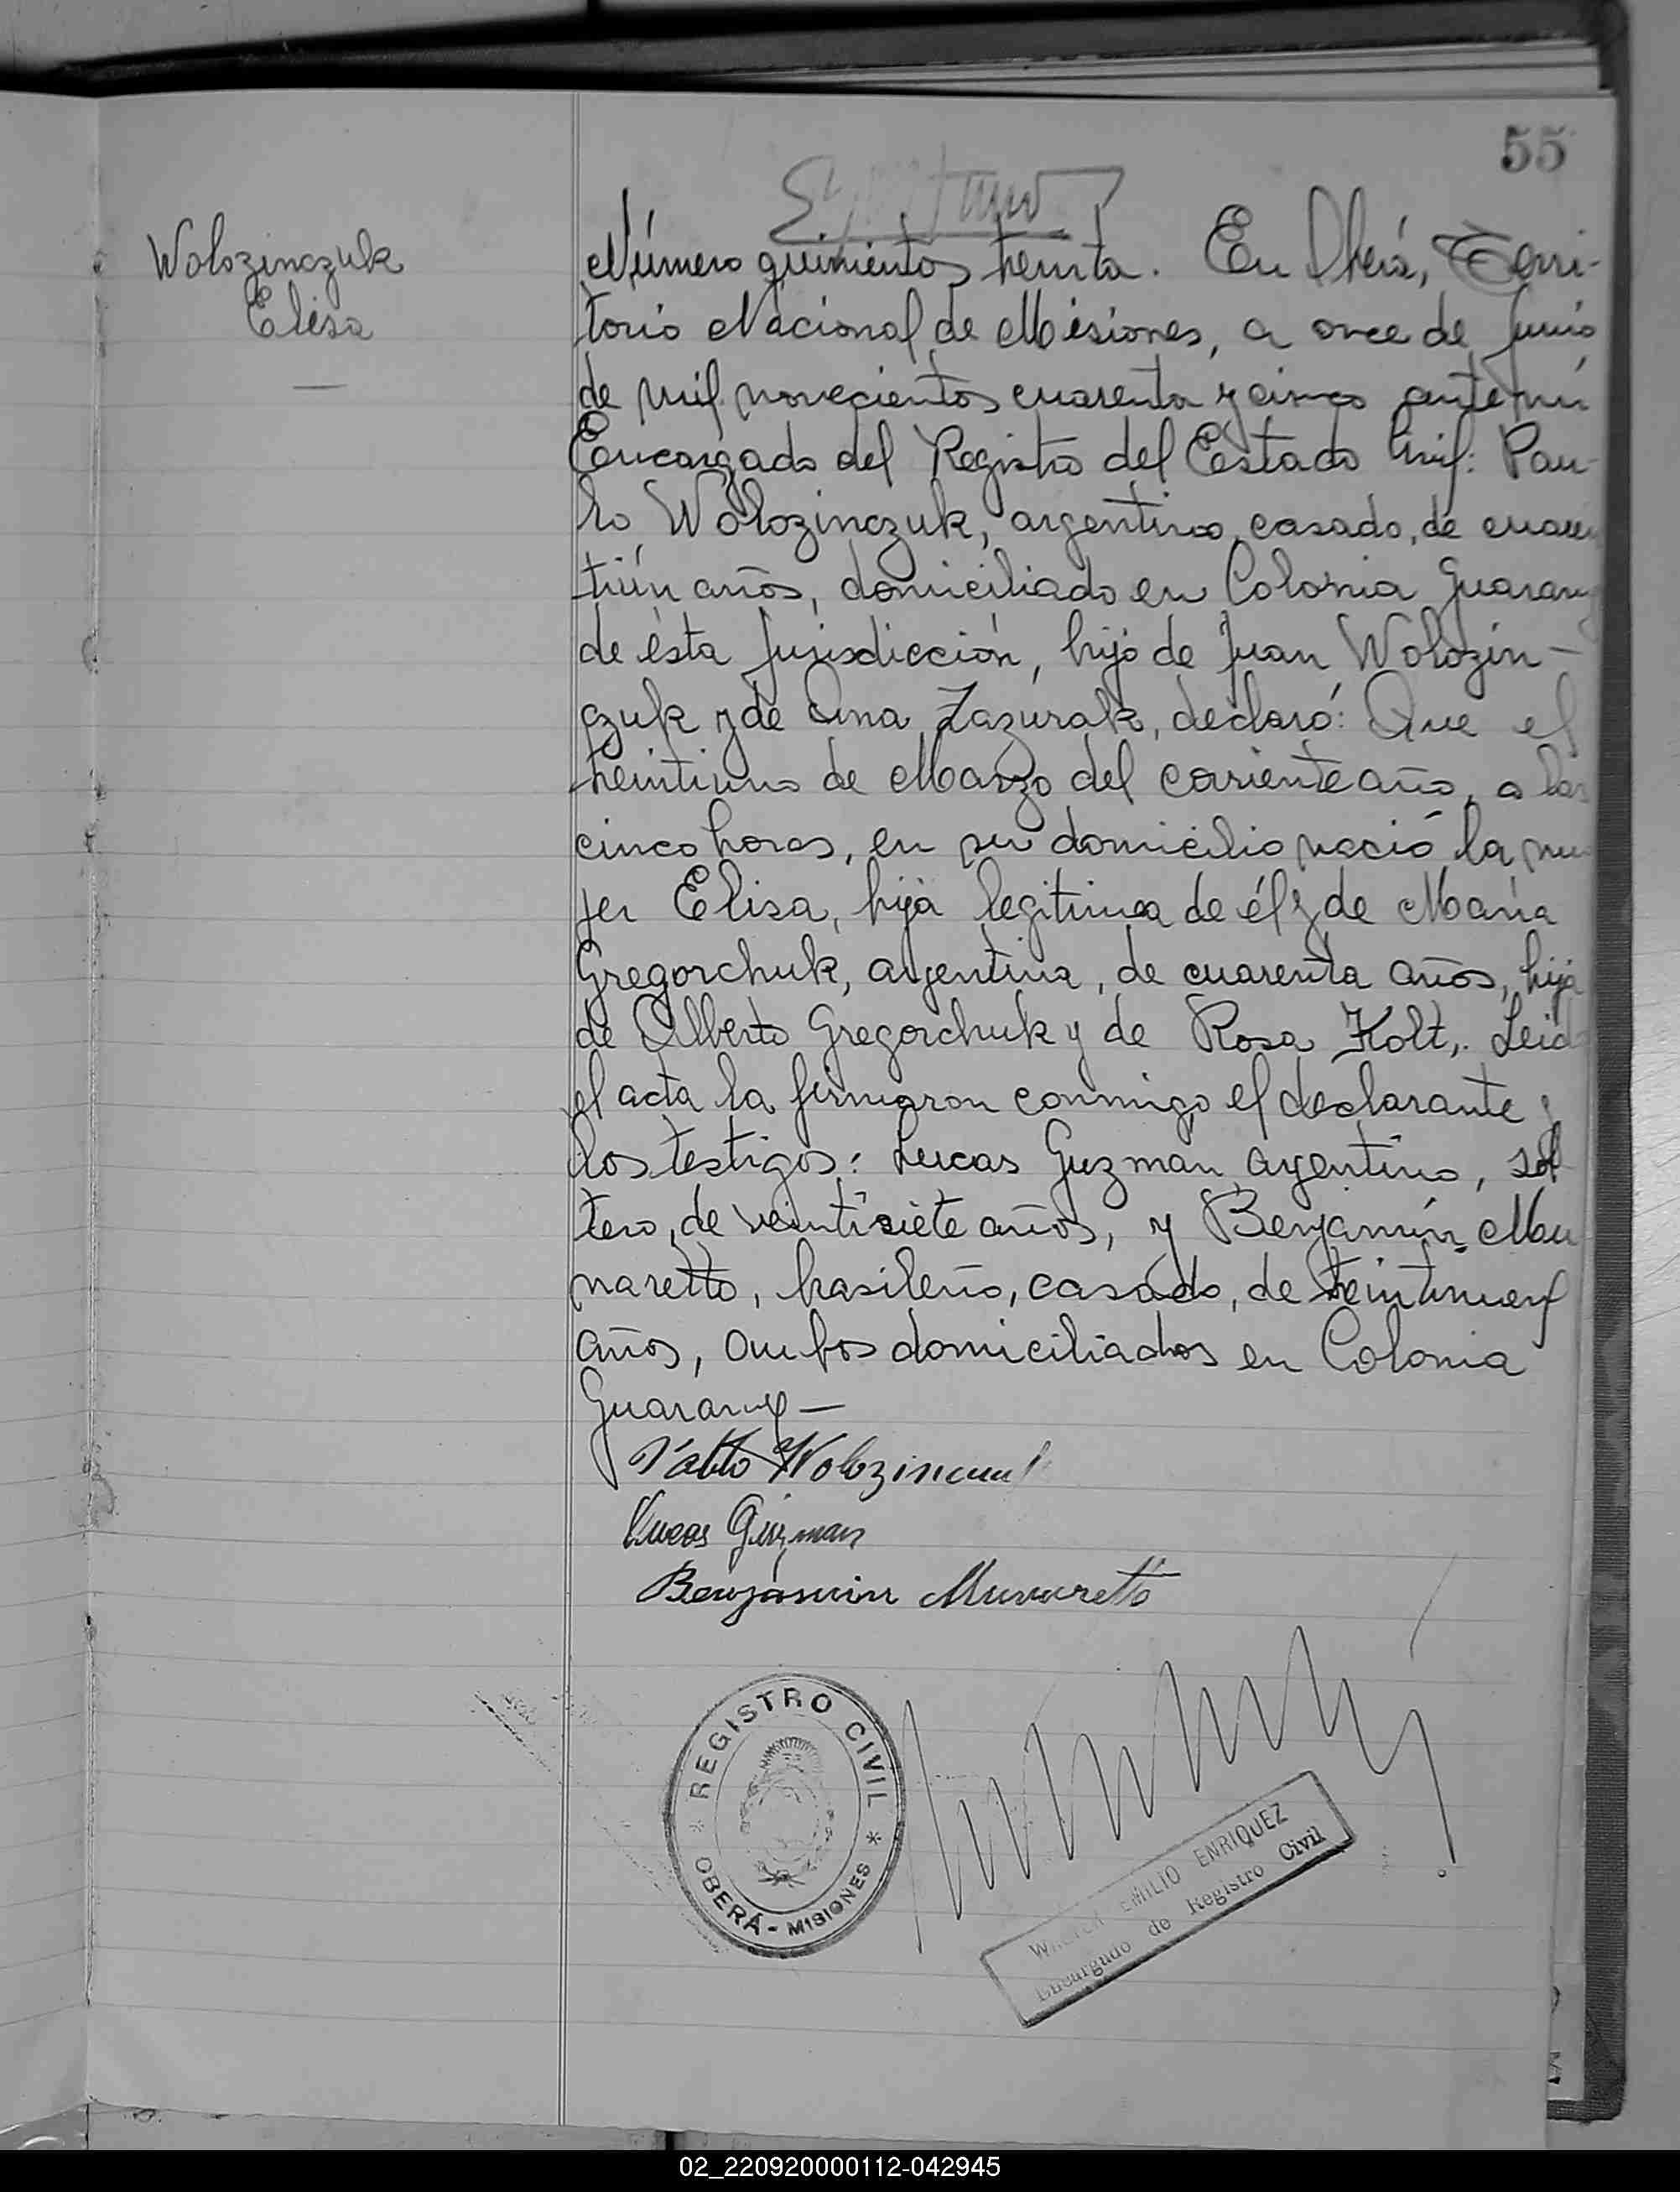 55
Wolozinczuk
Elisa
Número quinientos treinta. En Oberá, Terri-
torio Nacional de Misiones, a once de Junio
de mil novecientos cuarenta y cinco ante mí
Encargado del Registro del Estado Civil: Pau-
lo Wolozinczuk, argentino, casado, de cuaren
tiún años, domiciliado en Colonia Guarany
de ésta Jurisdicción, hijo de Juan Wolozin-
czuk y de Ana Zazurak, declaró: Que el
treintiuno de Marzo del corriente año, a las
cinco horas, en su domicilio nació la mu
jer Elisa, hija legitima de él y de María
Gregorchuk, argentina, de cuarenta años, hija
de Alberto Gregorchuk y de Rosa Kolt,. Leida
el acta la firmaron conmigo el declarante y
los testigos: Lucas Guzman, argentino, sol
tero, de veintisiete años, y Benjamín Mu
naretto, brasileño, casado, de treintinueve
años, ambos domiciliados en Colonia
Guarany-
Pablo
Lucas Guzman
Benjamin Munaretto
REGISTRO CIVIL
OBERÁ - MISIONES
EMILIO ENRIQUEZ
Encargado de Registro Civil
02_220920000112-042945